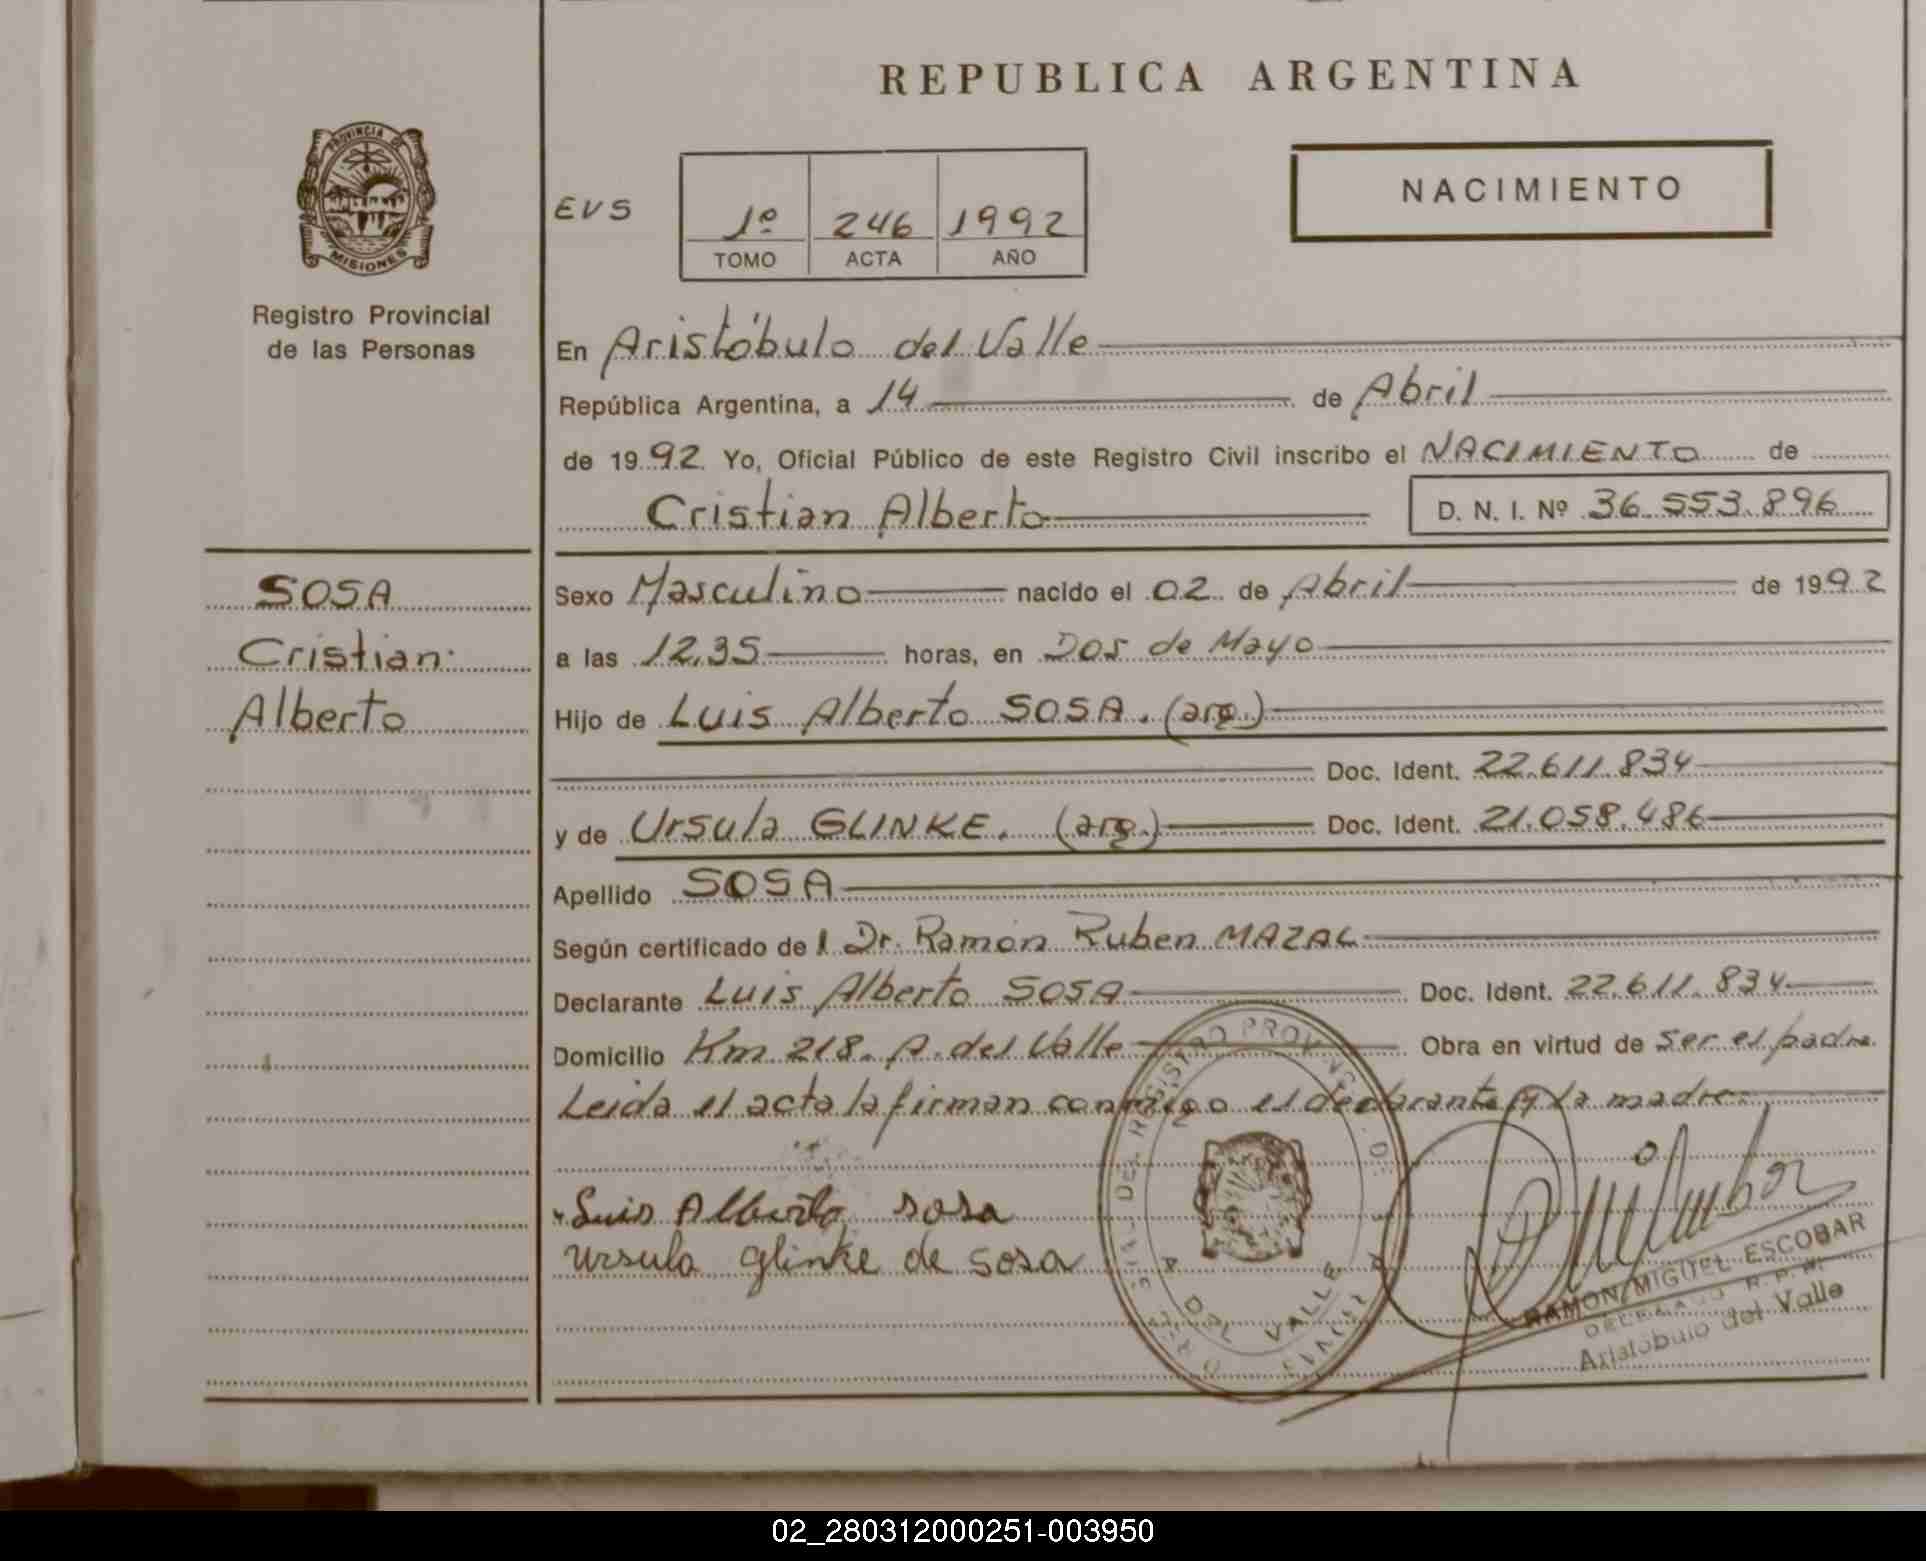 REPUBLICA ARGENTINA
PROVINCIA DE
MISIONES
Registro Provincial
de las Personas
NACIMIENTO
EVS
1º 246 1992
TOMO ACTA AÑO
En Aristóbulo del Valle
República Argentina, a 14 de Abril
de 1992 Yo, Oficial Público de este Registro Civil inscribo el NACIMIENTO de
Cristian Alberto D. N. I. Nº 36.553.896
SOSA
Cristian
Alberto
Sexo Masculino nacido el 02 de Abril de 1992
a las 12,35 horas, en Dos de Mayo
Hijo de Luis Alberto SOSA. (arg.)
Doc. Ident. 22.611.834
y de Ursula GLINKE. (arg.) Doc. Ident. 21.058.486
Apellido SOSA
Según certificado del Dr. Ramón Ruben MAZAL
Declarante Luis Alberto SOSA Doc. Ident. 22.611.834
Domicilio Km 218. A. del Valle Obra en virtud de ser el padre
Leida el acta la firman conmigo el declarante y la madre
Luis Alberto sosa
Ursula glinke de sosa
DEL REGISTRO PROVINC. DE
DEL VALLE
RAMON MIGUEL ESCOBAR
DELEGADO R. P. P.
Aristobulo del Valle
02_280312000251-003950